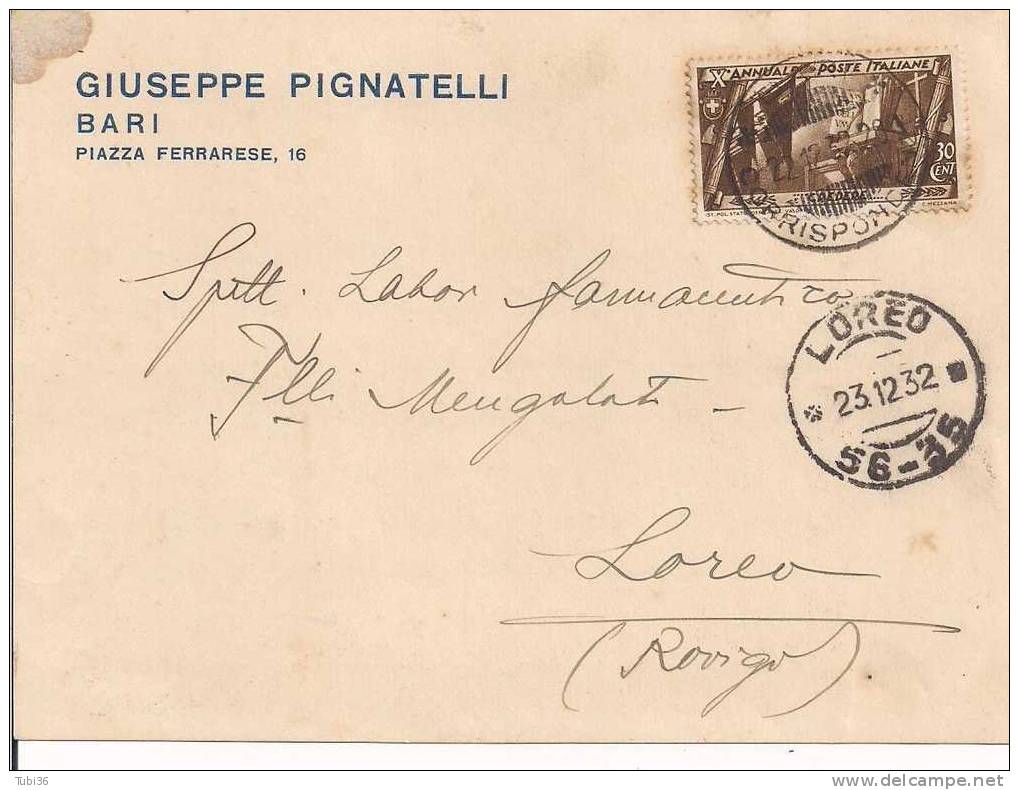 GIUSEPPE PIGNATELLI
BARI
PIAZZA FERRARESE, 16
X° ANNUALE POSTE ITALIANE
30 CENT
CREDERE
C. MEZZANA
CORRISPOND
Spett. Labor farmaceutico
F.lli Mengolati
Loreo
(Rovigo)
LOREO
23.12.32
56-35
Tubi36
delcampe.net